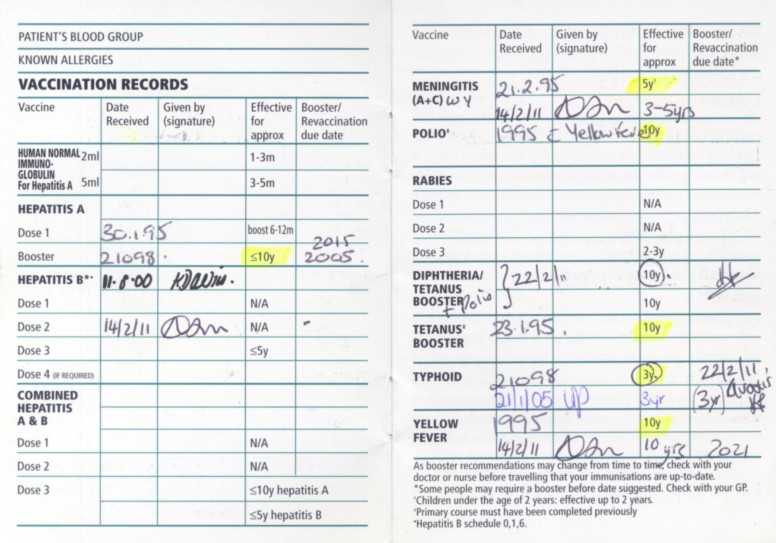 PATIENT'S BLOOD GROUP
KNOWN ALLERGIES
VACCINATION RECORDS
Vaccine Date Received Given by (signature) Effective for approx Booster/ Revaccination due date
HUMAN NORMAL IMMUNO-GLOBULIN For Hepatitis A 2ml 1-3m
5ml 3-5m
HEPATITIS A
Dose 1 30.1.95 boost 6-12m
2015
Booster 21098. ≤10y 2005.
HEPATITIS B*· 11.8.00
Dose 1 N/A
Dose 2 14/2/11 N/A
Dose 3 ≤5y
Dose 4 (IF REQUIRED)
COMBINED HEPATITIS A & B
Dose 1 N/A
Dose 2 N/A
Dose 3 ≤10y hepatitis A
≤5y hepatitis B
Vaccine Date Received Given by (signature) Effective for approx Booster/ Revaccination due date*
MENINGITIS (A+C) W Y 21.2.95 5y'
14/2/11 3-5yrs
POLIO' 1995 c Yellow fever 10y
RABIES
Dose 1 N/A
Dose 2 N/A
Dose 3 2-3y
DIPHTHERIA/ TETANUS BOOSTER + Polio 22/2/11 10y
10y
TETANUS' BOOSTER 23.1.95. 10y
TYPHOID 21098 3y. 22/2/11
21/1/05 3yr (3yr)
YELLOW FEVER 1995 10y
14/2/11 10 yrs 2021
As booster recommendations may change from time to time, check with your
doctor or nurse before travelling that your immunisations are up-to-date.
*Some people may require a booster before date suggested. Check with your GP.
'Children under the age of 2 years: effective up to 2 years.
'Primary course must have been completed previously
*Hepatitis B schedule 0,1,6.